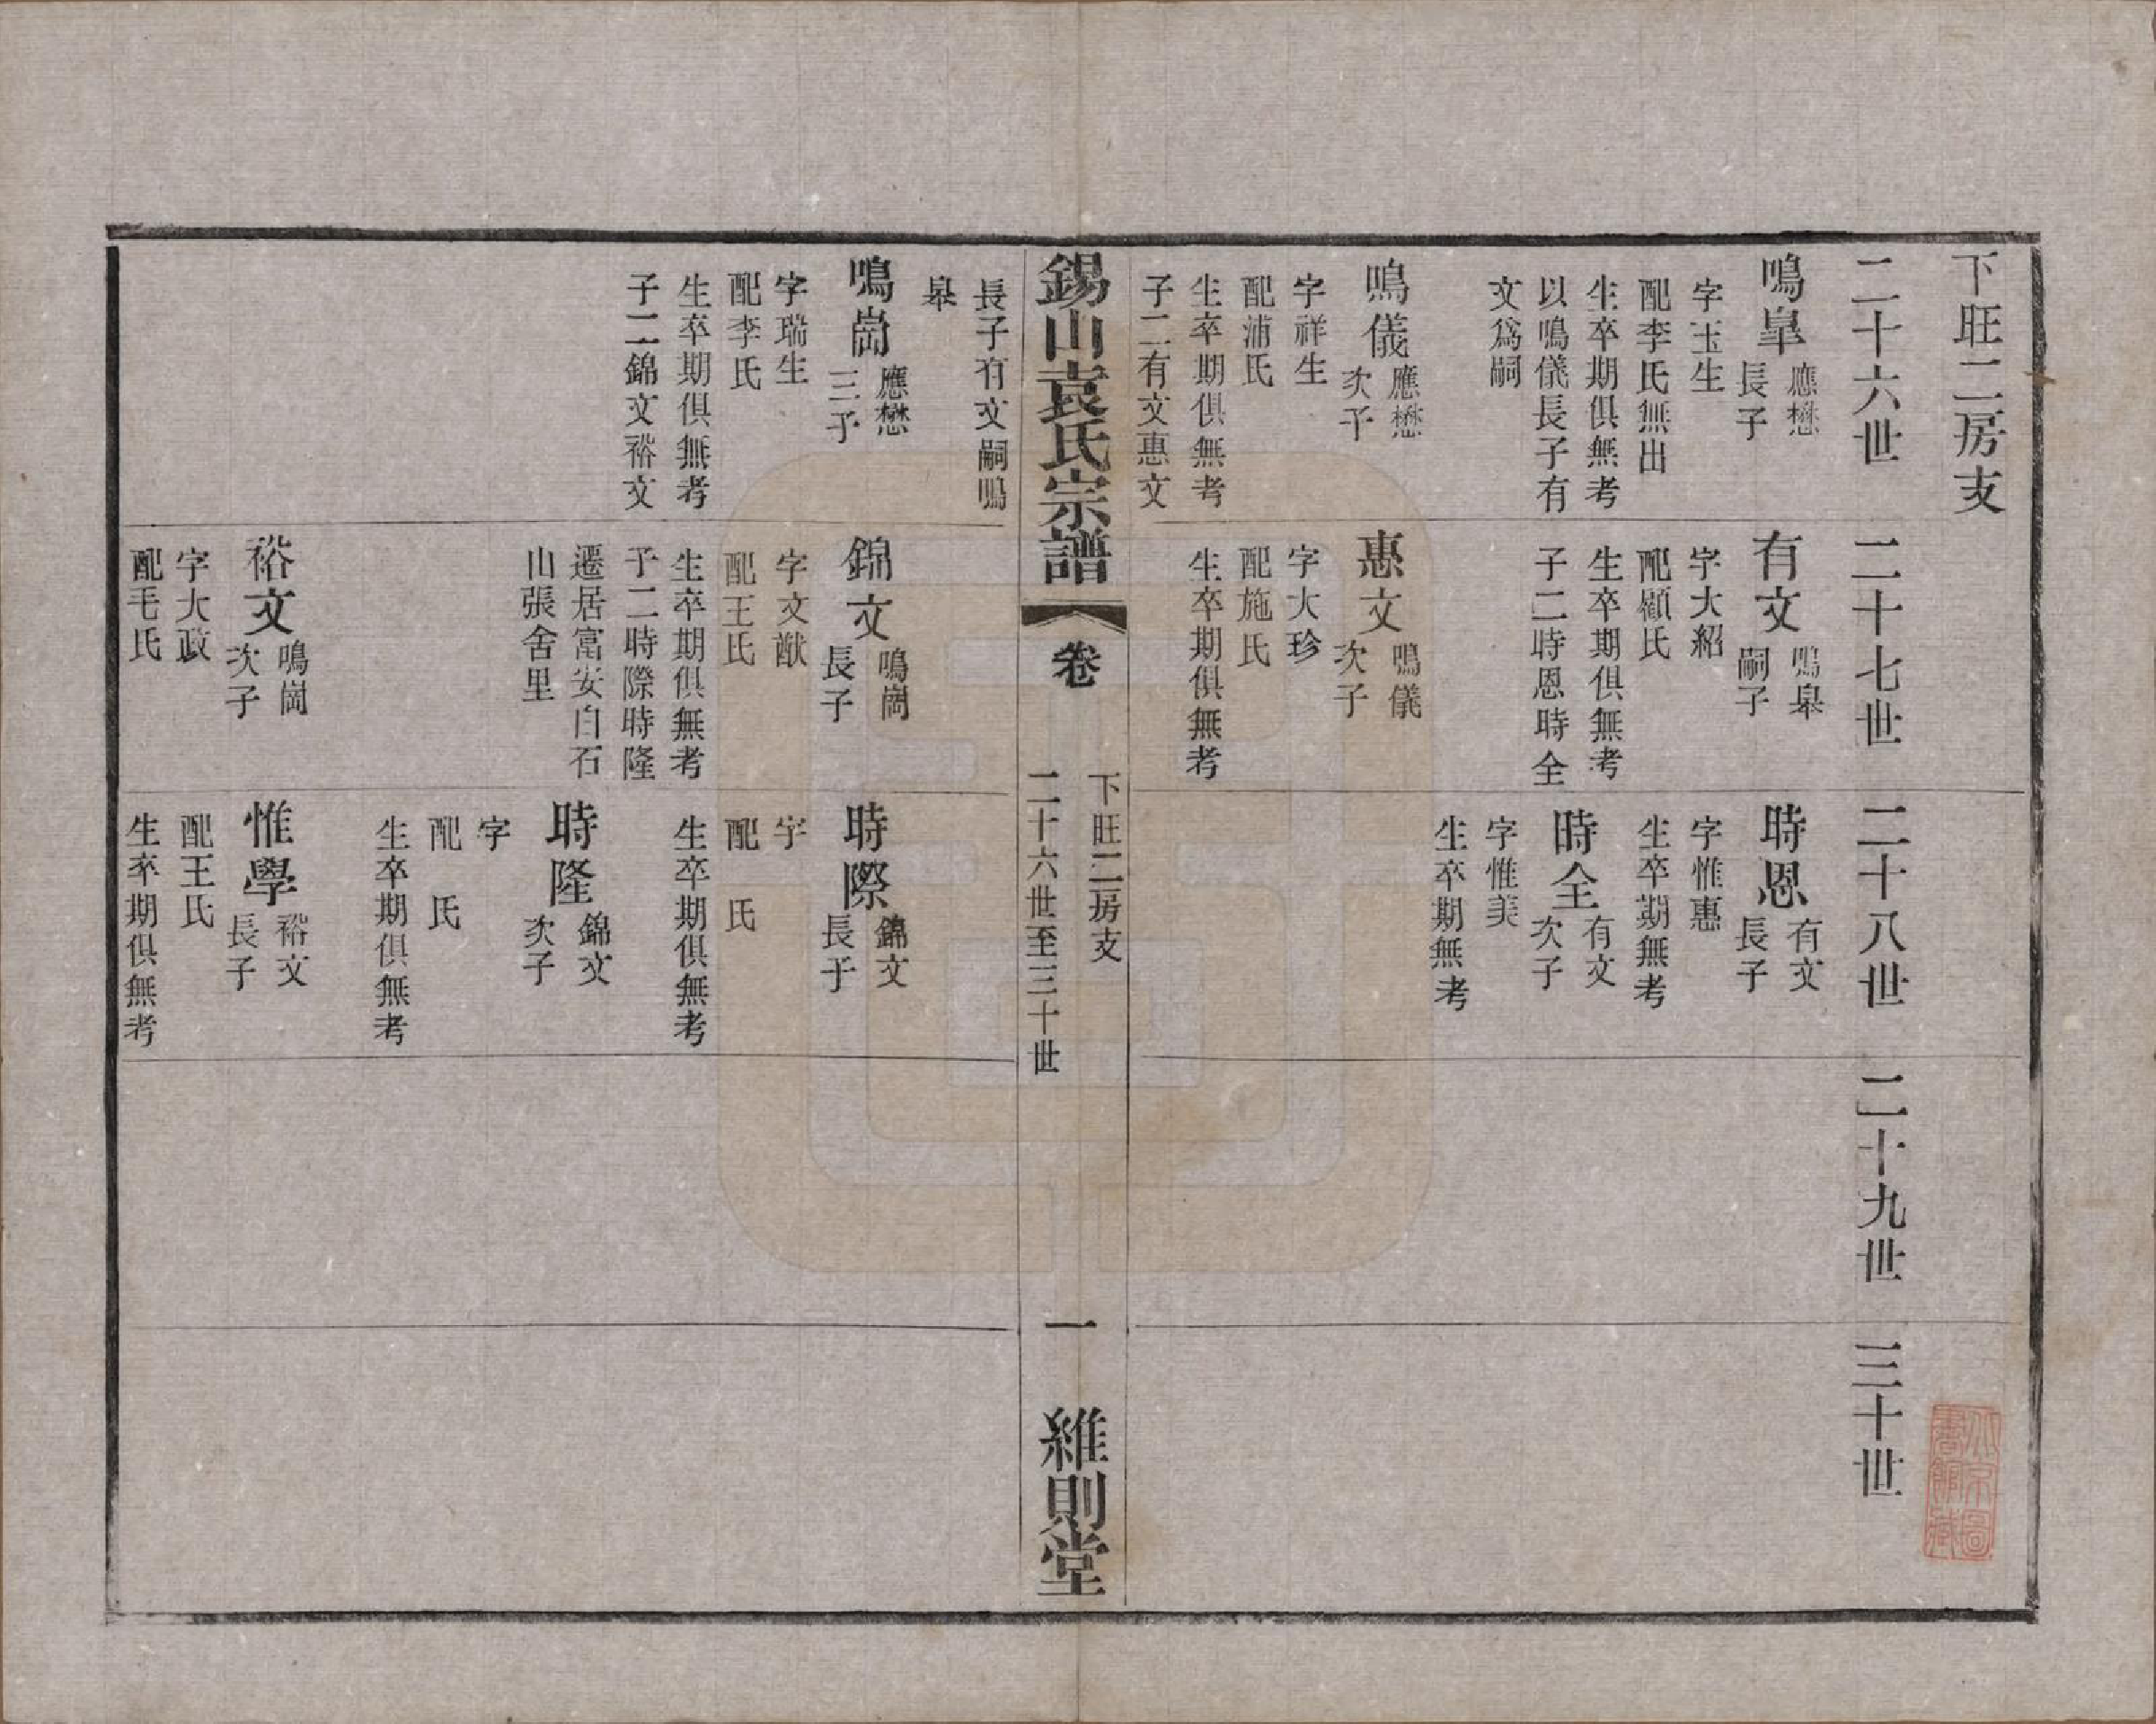 下旺二房支
二十六世
鳴臯
應懋
長子
字玉生
配李氏無出
生卒期俱無考
以鳴儀長子有
文爲嗣
鳴儀
應懋
次子
字祥生
配浦氏
生卒期俱無考
子二有文惠文
長子有文嗣鳴
臯
鳴崗
應懋
三子
字瑞生
配李氏
生卒期俱無考
子二錦文裕文
二十七世
有文
鳴臯
嗣子
字大紹
配顧氏
生卒期俱無考
子二時恩時全
惠文
鳴儀
次子
字大珍
配施氏
生卒期俱無考
錦文
鳴崗
長子
字文猷
配王氏
生卒期俱無考
子二時際時隆
遷居富安白石
山張舍里
裕文
鳴崗
次子
字大政
配毛氏
二十八世
時恩
有文
長子
字惟惠
生卒期無考
時全
有文
次子
字惟美
生卒期無考
時際
錦文
長子
字
配 氏
生卒期俱無考
時隆
錦文
次子
字
配 氏
生卒期俱無考
惟學
裕文
長子
配王氏
生卒期俱無考
二十九世
三十世
錫山袁氏宗譜
卷
下旺二房支
二十六世至三十世
一
維則堂